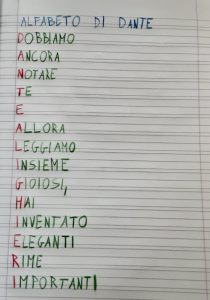 ALFABETO DI DANTE
DOBBIAMO
ANCORA
NOTARE
TE
E
ALLORA
LEGGIAMO
INSIEME
GIOIOSI,
HAI
INVENTATO
ELEGANTI
RIME
IMPORTANTI